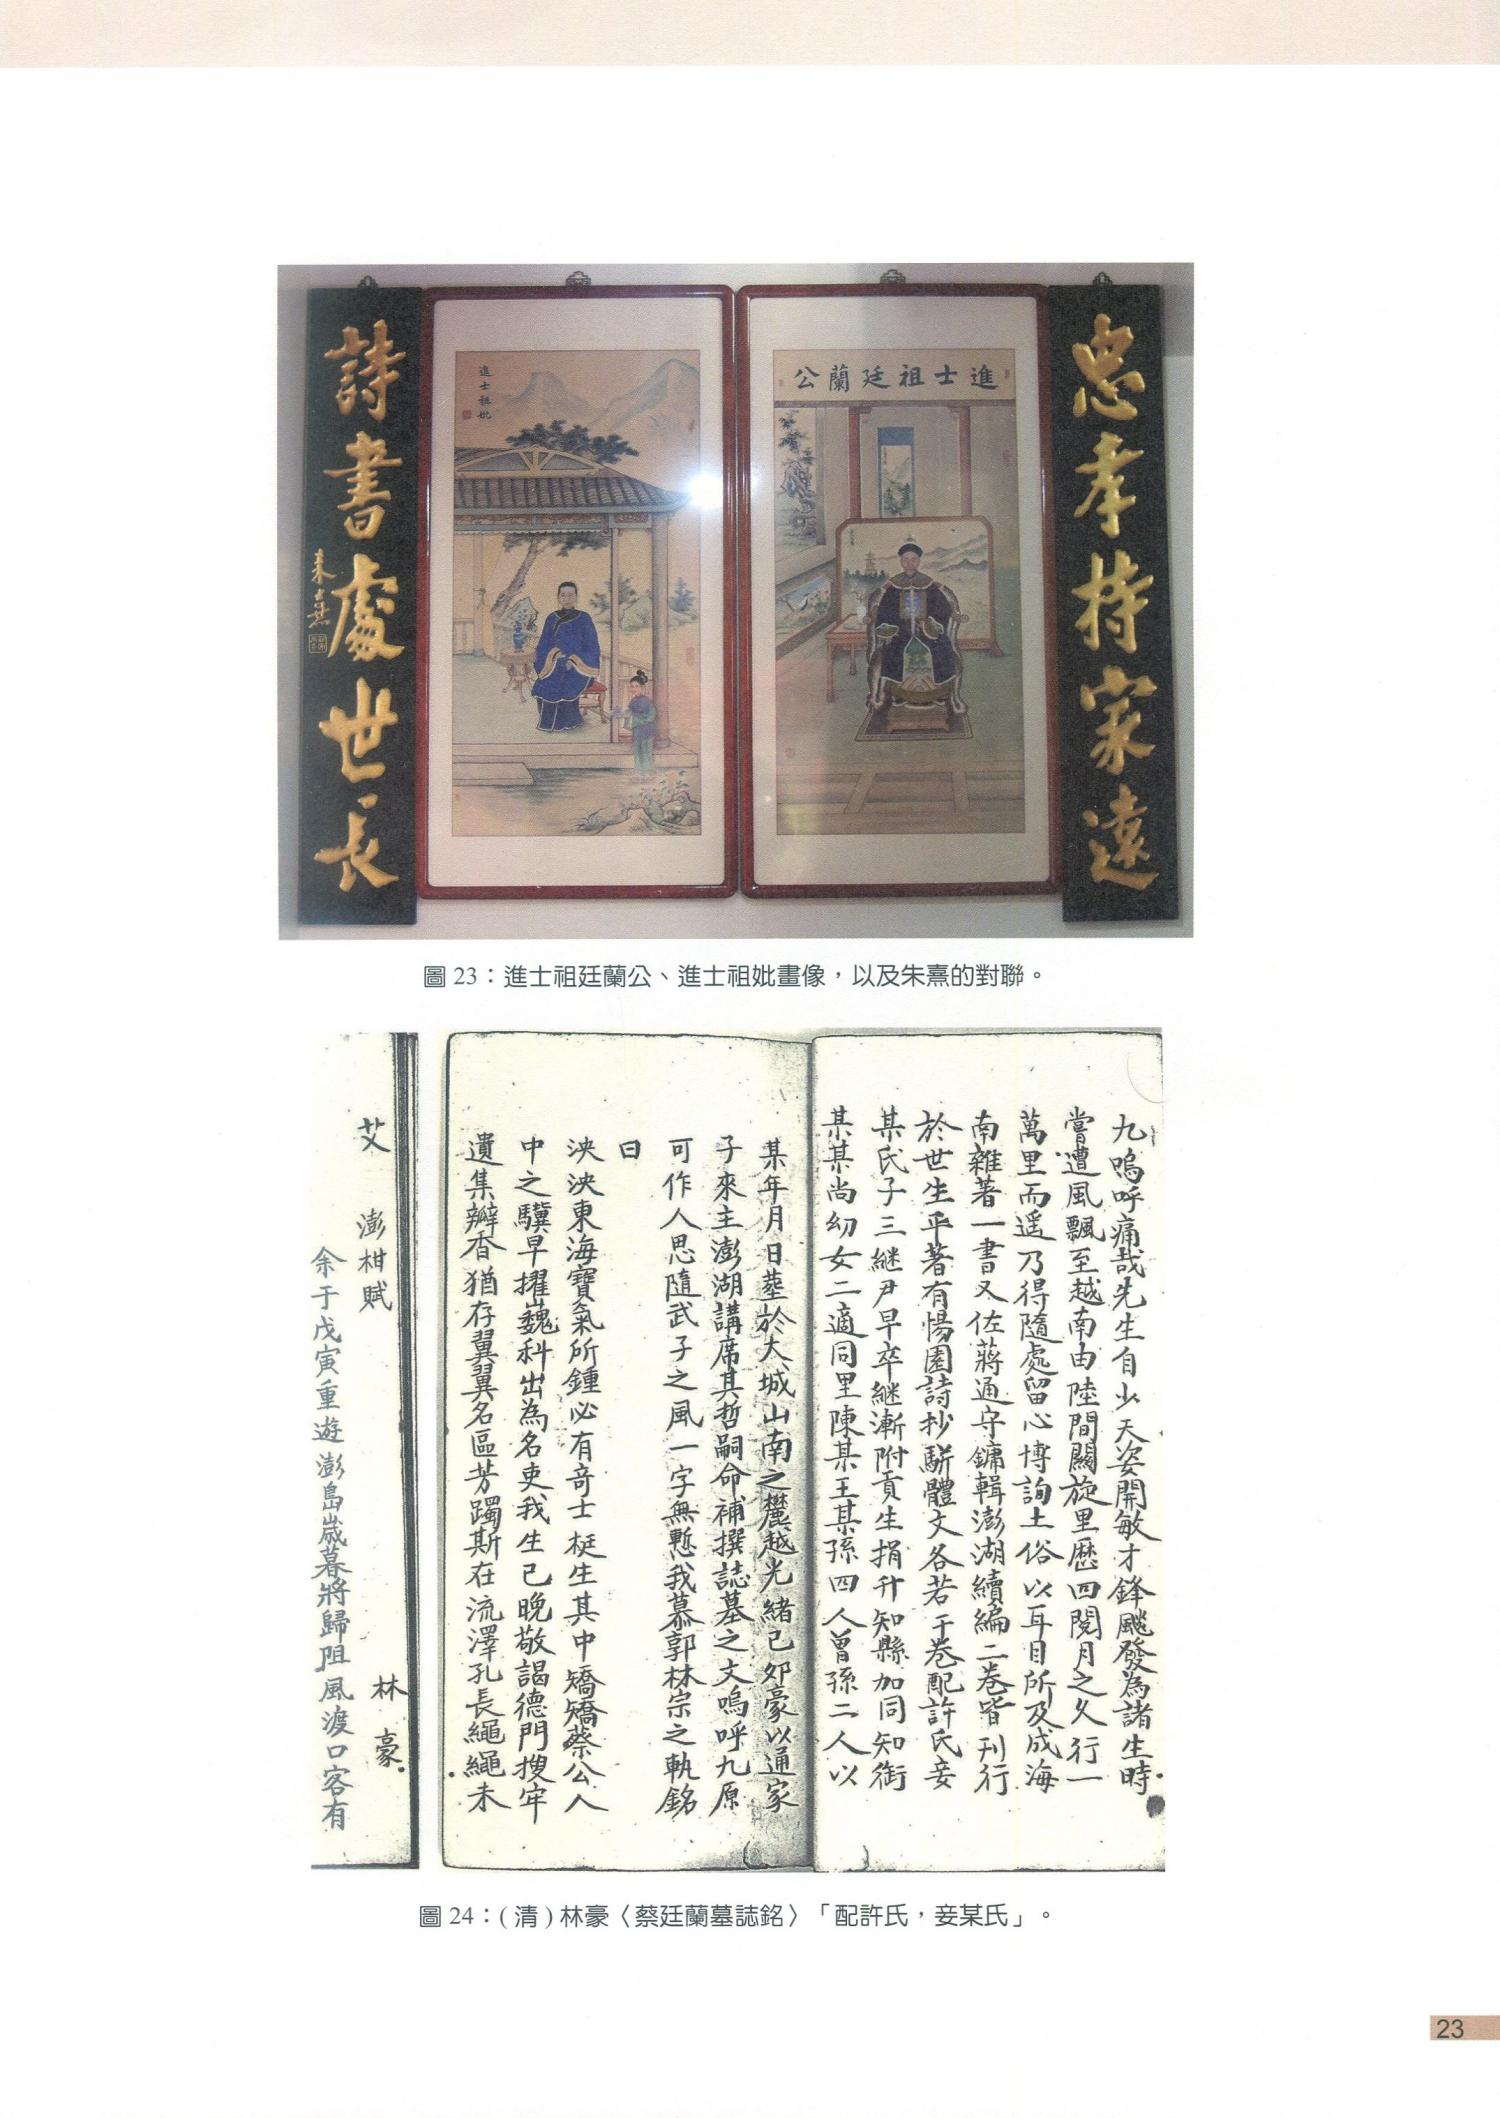 忠孝持家遠
進士祖廷蘭公
進士祖妣
詩書處世長
朱熹
圖 23：進士祖廷蘭公、進士祖妣畫像，以及朱熹的對聯。
九嗚呼痛哉先生自少天姿開敏才鋒飈發為諸生時
嘗遭風飄至越南由陸間關旋里歷四閱月之久行一
萬里而遥乃得隨處留心博詢土俗以耳目所及成海
南雜著一書又佐蔣通守鏞輯澎湖續編二卷皆刊行
於世生平著有惕園詩抄駢體文各若干卷配許氏妾
某氏子三継尹早卒継漸附貢生捐升知縣加同知銜
某某尚幼女二適同里陳某王某孫四人曾孫二人以
某年月日葬於大城山南之麓越光緒己卯豪以通家
子來主澎湖講席其哲嗣命補撰誌墓之文嗚呼九原
可作人思隨武子之風一字無慙我慕郭林宗之執銘
曰
泱泱東海寶氣所鍾必有奇士梃生其中矯矯蔡公人
中之驥早擢巍科出為名吏我生已晚敬謁德門搜牢
遺集瓣香猶存翼翼名區芳躅斯在流澤孔長繩繩未
艾
澎柑賦 林豪
余于戊寅重遊澎島歲暮將歸阻風渡口客有
圖 24：( 清 ) 林豪〈蔡廷蘭墓誌銘〉「配許氏，妾某氏」。
23